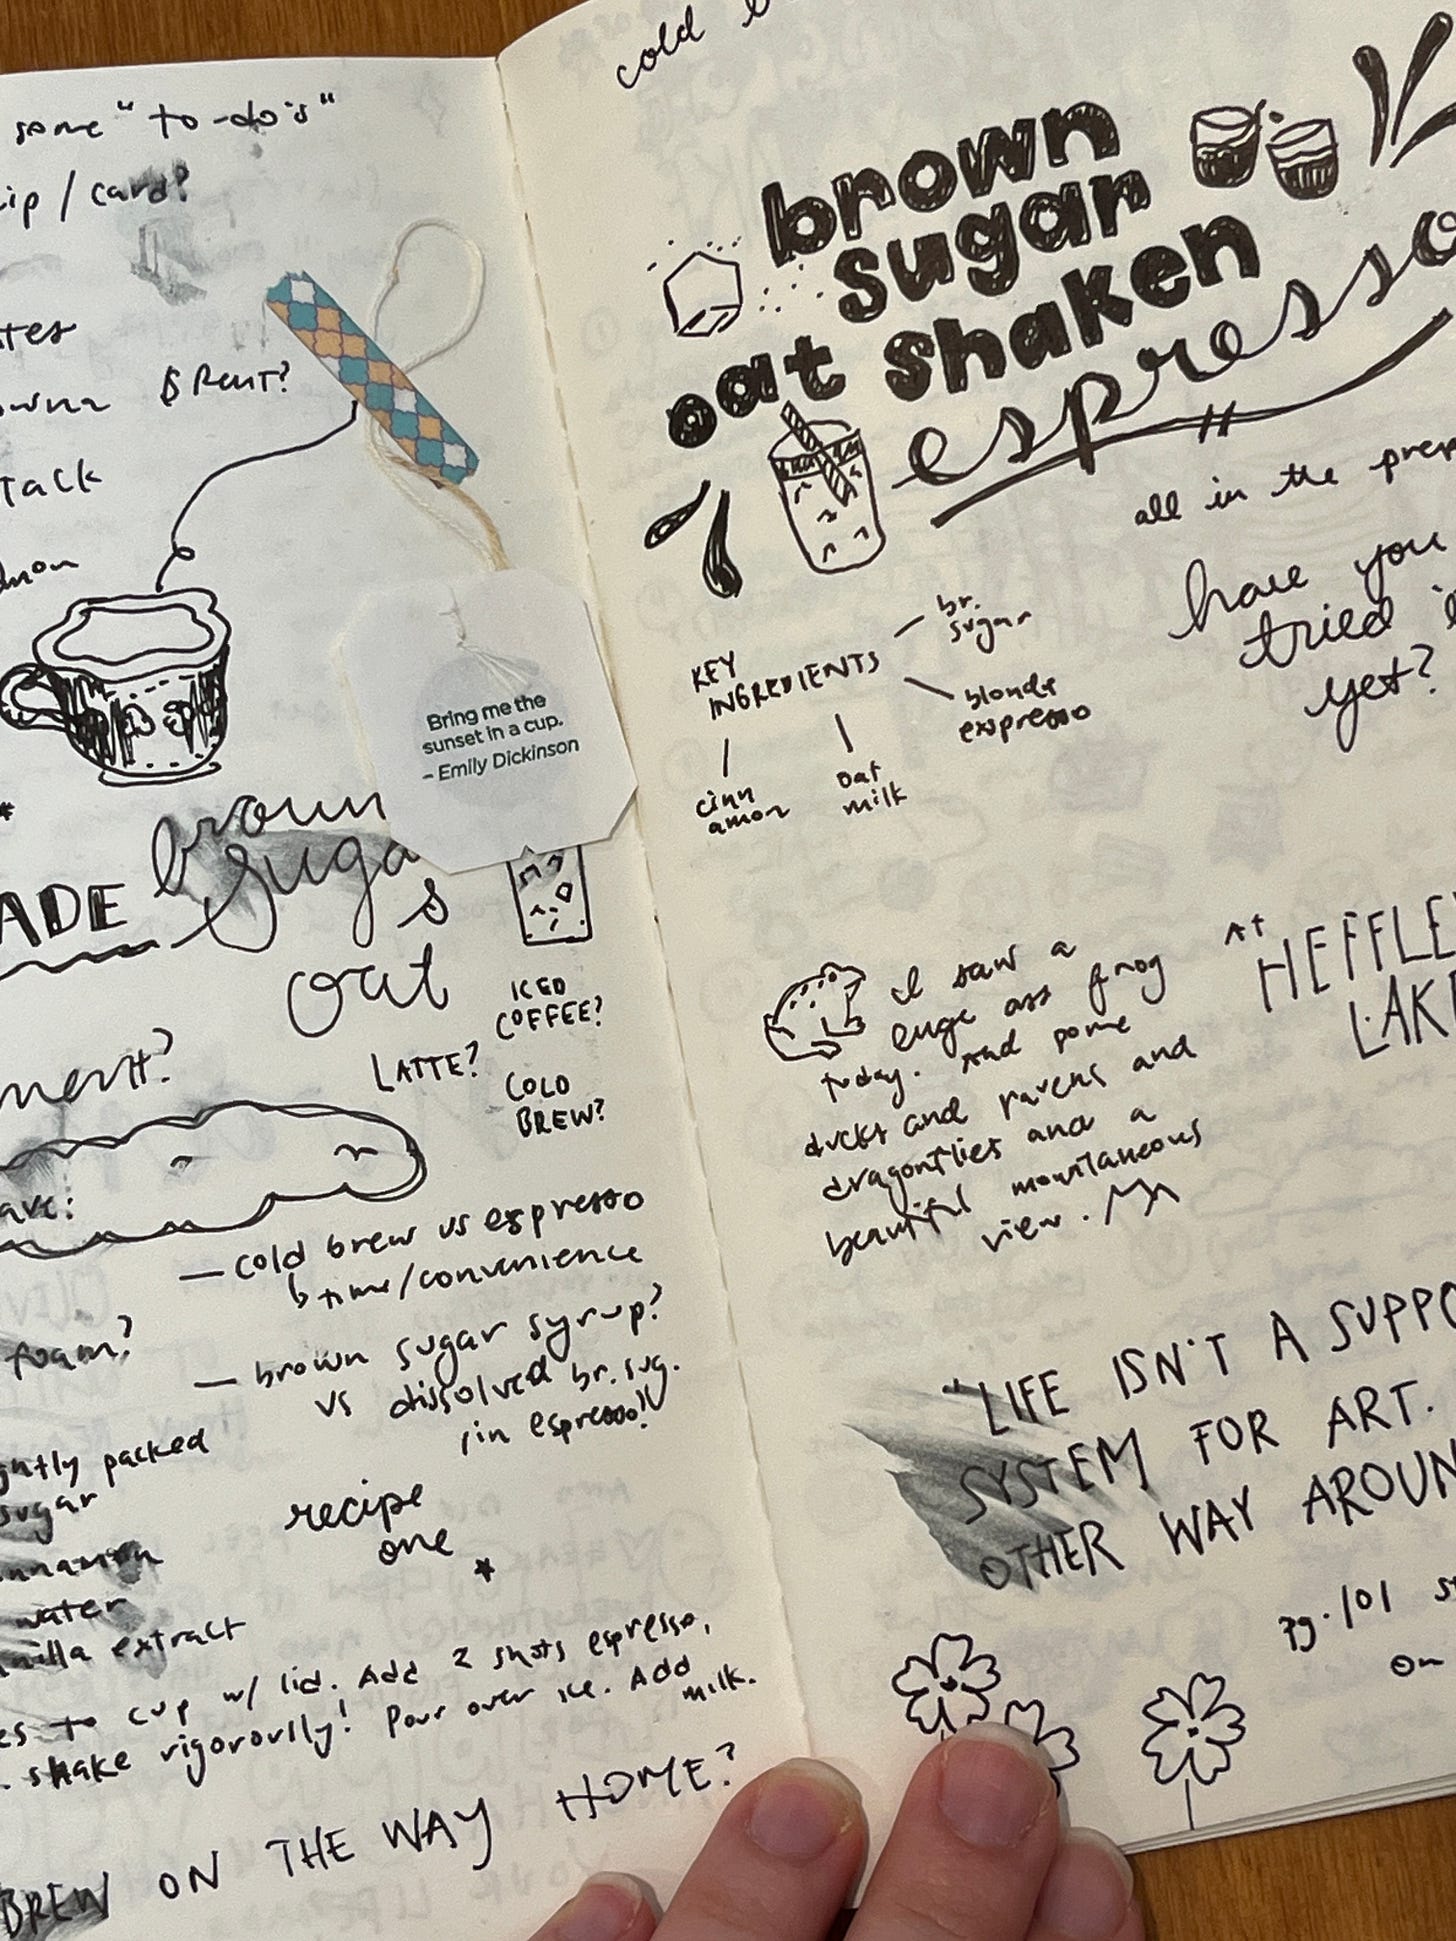 some "to-do's"
/ card?
$ RENT?
TACK
Bring me the
sunset in a cup.
– Emily Dickinson
brown
ADE
suga
s
oat
ICED
COFFEE?
LATTE?
COLD
BREW?
— cold brew vs espresso
↳ time/convenience
foam?
— brown sugar syrup?
vs dissolved br. sug.
in espresso?
packed
sugar
water
extract
recipe
one
*
to cup w/ lid. Add 2 shots espresso,
. shake rigorously! Pour over ice. Add
milk.
BREW ON THE WAY HOME?
cold
brown
sugar
oat shaken
espresso
all in the prep
have you
tried
yet?
KEY
INGREDIENTS
br.
sugar
blonde
espresso
cinn
amon
oat
milk
I saw a
euge ass frog
today. And some
ducks and ravens and
dragonflies and a
beautiful mountaneous
view.
AT
HEFFLE
LAK
"LIFE ISN'T A SUPPO
SYSTEM FOR ART.
OTHER WAY AROUN
pg. 101 s
on